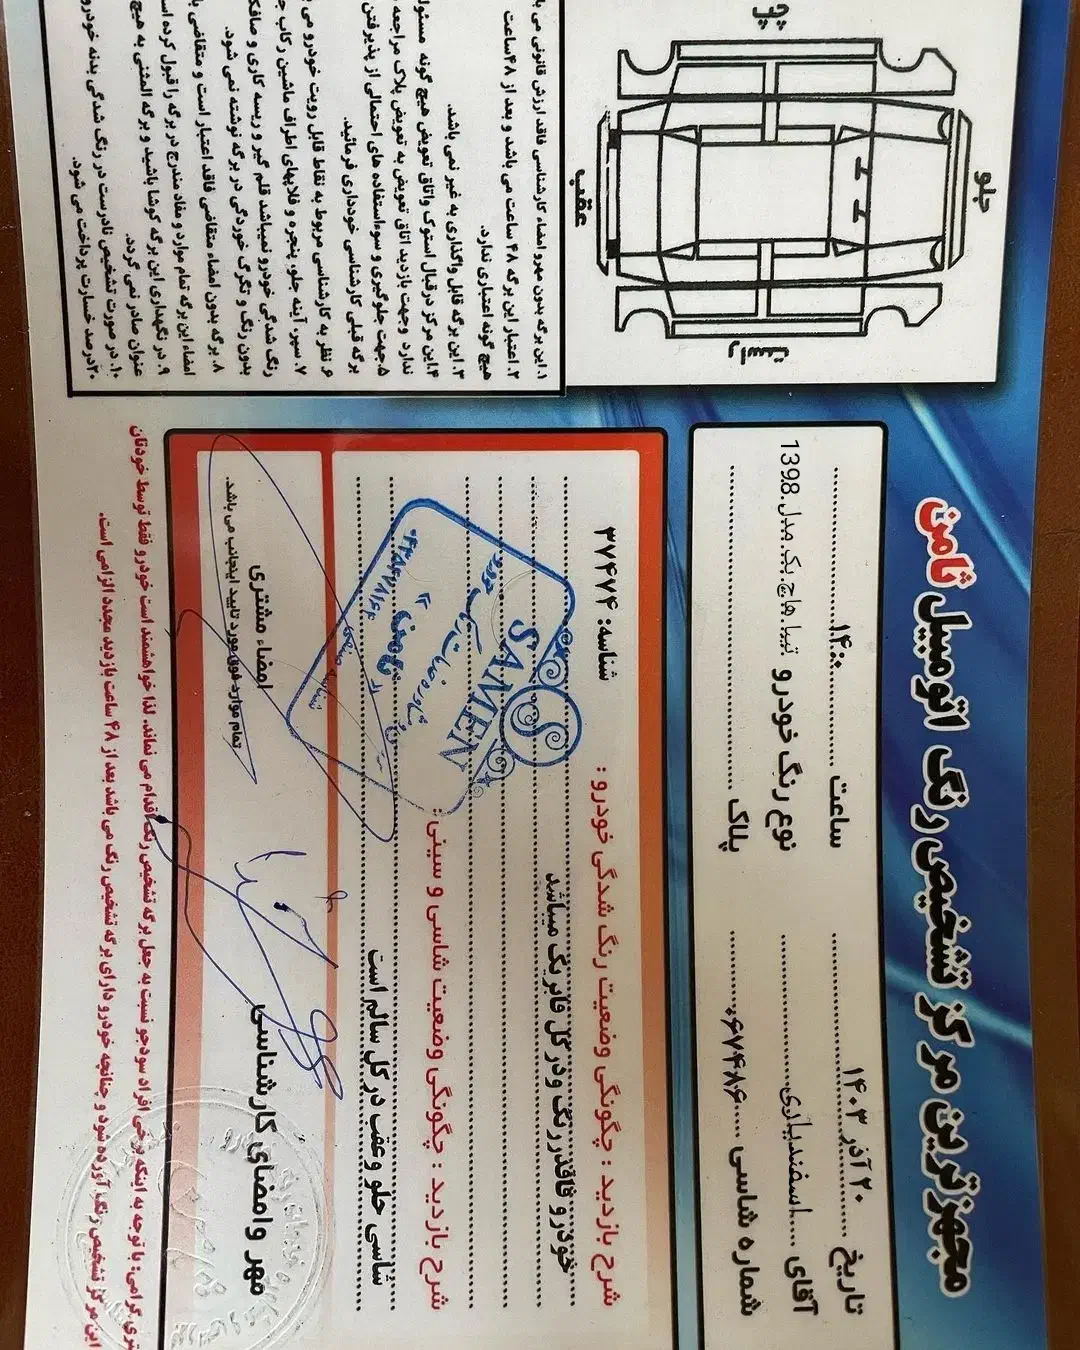 مجهزترین مرکز تشخیص رنگ اتومبیل ثامن
تاریخ ۲۰ آذر ۱۴۰۳ ساعت ۱۴:۰۰
آقای اسفندیاری نوع رنگ خودرو تیبا هاچ بک مدل 1398
شماره شاسی ۰۶۷۴۸۶ پلاک
شرح بازدید : چگونگی وضعیت رنگ شدگی خودرو : شناسه: ۳۷۴۷۴
خودرو فاقد رنگ و در کل فابریک میباشد
شرح بازدید : چگونگی وضعیت شاسی و سینی :
شاسی جلو و عقب در کل سالم است
SAMEN
مهر و امضای کارشناسی
امضاء مشتری
تمام موارد فوق مورد تایید اینجانب می باشد.
تری گرامی: با توجه به اینکه برخی افراد سودجو نسبت به جعل برگه تشخیص رنگ اقدام می نمایند. لذا خواهشمند است خودرو فقط توسط خودتان
این مرکز تشخیص رنگ آورده شود و چنانچه خودرو دارای برگه تشخیص رنگ می باشد بعد از ۴۸ ساعت بازدید مجدد الزامی است.
چپ
جلو
عقب
راست
۱. این برگه بدون مهر و امضاء کارشناسی فاقد ارزش قانونی می با
۲. اعتبار این برگه ۴۸ ساعت می باشد و بعد از ۴۸ ساعت
هیچ گونه اعتباری ندارد.
۳. این برگه قابل واگذاری به غیر نمی باشد.
۴. این مرکز در قبال استوک و اتاق تعویض هیچ گونه مسئول
ندارد و جهت بازدید اتاق تعویض به تعویض پلاک مراجعه
۵. جهت جلوگیری و سوء استفاده های احتمالی از پذیرفتن
برگه قبلی کارشناسی خودداری فرمائید.
۶. نظر به کارشناسی مربوط به نقاط قابل رویت خودرو می
۷. سپر، آینه جلو، پنجره و قلابهای اطراف ماشین رکاب جـ
رنگ شدگی خودرو نمیباشد قلم گیر و ریسه کاری و صافکـ
بدون رنگ و تگرگ خوردگی در برگه نوشته نمی شود.
۸. برگه بدون امضاء متقاضی فاقد اعتبار است و متقاضی با
امضاء این برگه تمام موارد و مفاد مندرج در برگه را قبول کرده اسـ
۹. در نگهداری این برگه کوشا باشید و برگه المثنی به هیچ
عنوان صادر نمی گردد.
۱۰. در صورت تشخیص نادرست در رنگ شدگی بدنه خودرو
۲۰درصد خسارت پرداخت می شود.